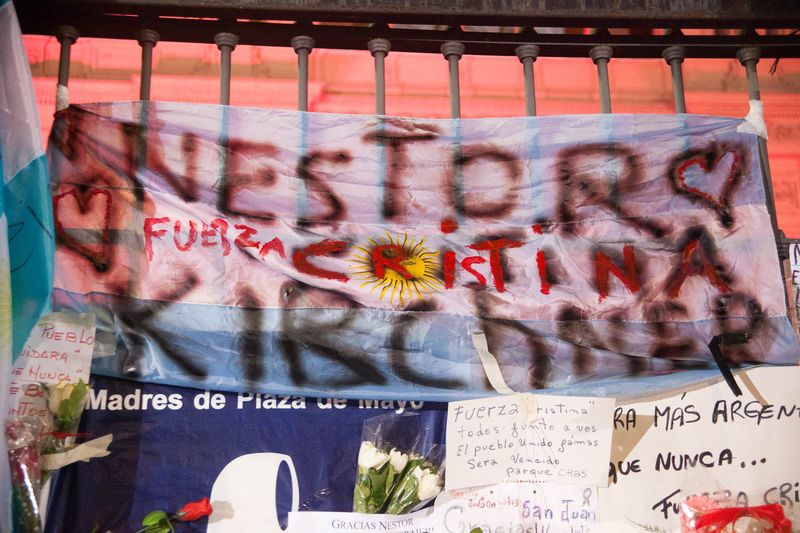 NESTOR
FUERZA CRistiNA
KIRCHNER
PUEBLO
NUNCA"
Madres de Plaza de Mayo
Fuerza Cristina"
todos junto a vos
El pueblo Unido jámas
Sera Vencido
parque CHAS
RA MÁS ARGENT
QUE NUNCA...
FUERZA CRIS
GRACIAS NESTOR
San Juan
Gracias!!